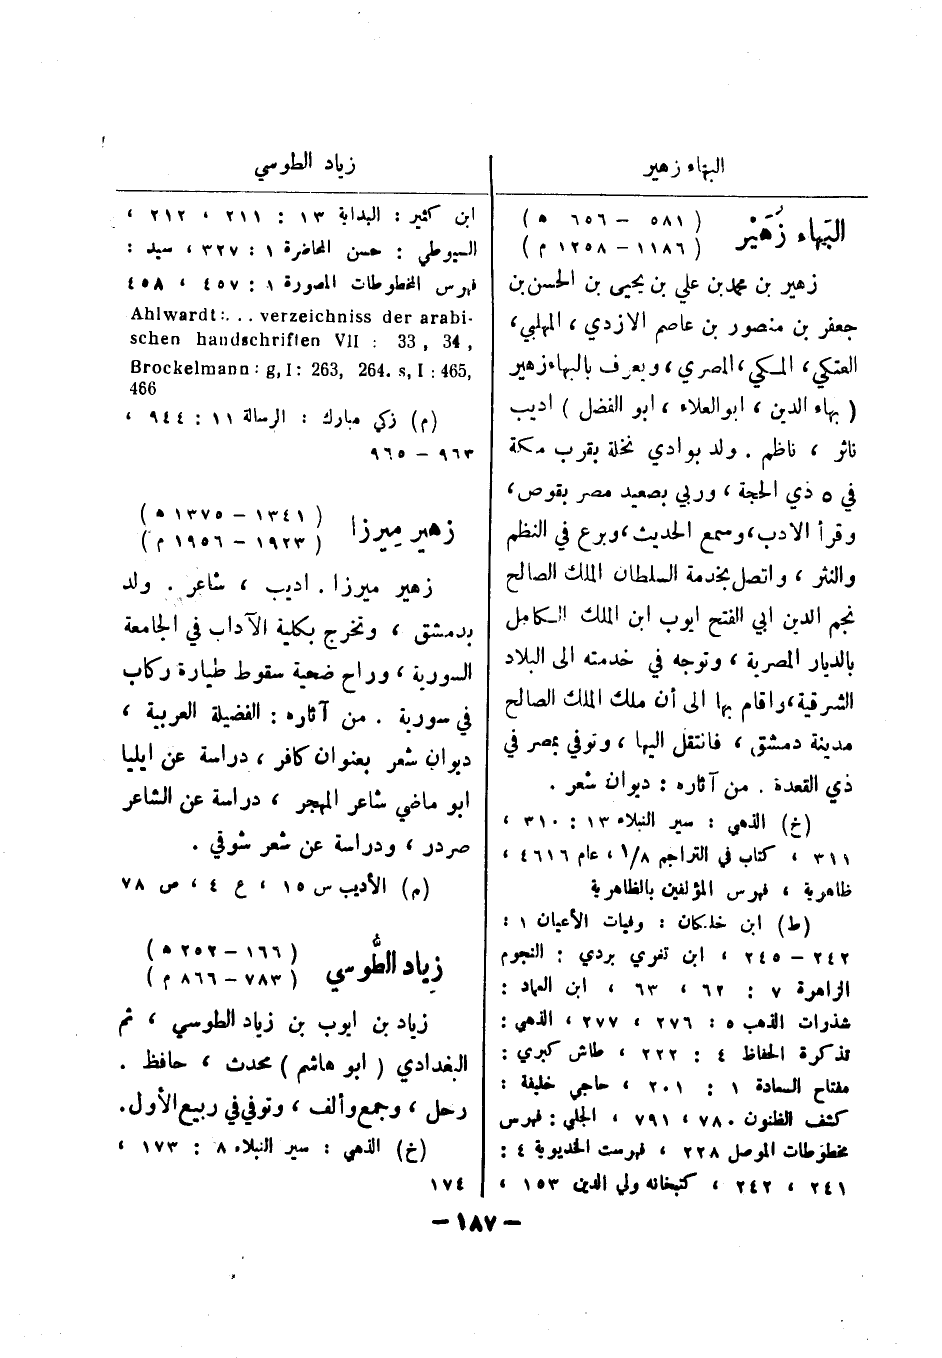 البهاء زهير
البَهاء زُهَيْر
( ٥٨١ – ٦٥٦ ه )
( ١١٨٦ – ١٢٥٨ م )
زهير بن محمد بن علي بن يحيى بن الحسن بن
جعفر بن منصور بن عاصم الازدي ، المهلبي ،
العتكي ، المكي ، المصري ، ويعرف بالبهاء زهير
( بهاء الدين ، ابو العلاء ، ابو الفضل ) اديب
ناثر ، ناظم . ولد بوادي نخلة بقرب مكة
في ٥ ذي الحجة ، وربي بصعيد مصر بقوص ،
وقرأ الادب ، وسمع الحديث ، وبرع في النظم
والنثر ، واتصل بخدمة السلطان الملك الصالح
نجم الدين ابي الفتح ايوب ابن الملك الكامل
بالديار المصرية ، وتوجه في خدمته الى البلاد
الشرقية ، واقام بها الى أن ملك الملك الصالح
مدينة دمشق ، فانتقل اليها ، وتوفي بمصر في
ذي القعدة . من آثاره : ديوان شعر .
(خ) الذهبي : سير النبلاء ١٣ : ٣١٠ ،
٣١١ ، كتاب في التراجم ١/٨ ، عام ٤٦١٦ ،
ظاهرية ، فهرس المؤلفين بالظاهرية
(ط) ابن خلكان : وفيات الأعيان ١ :
٢٤٢ – ٢٤٥ ، ابن تغري بردي : النجوم
الزاهرة ٧ : ٦٢ ، ٦٣ ، ابن العماد :
شذرات الذهب ٥ : ٢٧٦ ، ٢٧٧ ، الذهبي :
تذكرة الحفاظ ٤ : ٢٢٢ ، طاش كبري :
مفتاح السادة ١ : ٢٠١ ، حاجي خليفة :
كشف الظنون ٧٨٠ ، ٧٩١ ، الجلبي : فهرس
مخطوطات الموصل ٢٢٨ ، فهرست الخديوية ٤ :
٢٤١ ، ٢٤٢ ، كتبخانه ولي الدين ١٥٣ ،
زياد الطوسي
ابن كثير : البداية ١٣ : ٢١١ ، ٢١٢ ،
السيوطي : حسن المحاضرة ١ : ٣٢٧ ، سيد :
فهرس المخطوطات المصورة ١ : ٤٥٧ ، ٤٥٨
Ahlwardt:... verzeichniss der arabi-
schen handschriften VII : 33 , 34 ,
Brockelmann : g, I : 263, 264. s, I : 465,
466
(م) زكي مبارك : الرسالة ١١ : ٩٤٤ ،
٩٦٣ – ٩٦٥
زهير ميرزا
( ١٣٤١ – ١٣٧٥ ه )
( ١٩٢٣ – ١٩٥٦ م )
زهير ميرزا . اديب ، شاعر . ولد
بدمشق ، وتخرج بكلية الآداب في الجامعة
السورية ، وراح ضحية سقوط طيارة ركاب
في سورية . من آثاره : الفضيلة العربية ،
ديوان شعر بعنوان كافر ، دراسة عن ايليا
ابو ماضي شاعر المهجر ، دراسة عن الشاعر
صردر ، ودراسة عن شعر شوقي .
(م) الأديب س ١٥ ، ع ٤ ، ص ٧٨
زِياد الطُّوسي
( ١٦٦ – ٢٥٢ ه )
( ٧٨٣ – ٨٦٦ م )
زياد بن ايوب بن زياد الطوسي ، ثم
البغدادي ( ابو هاشم ) محدث ، حافظ .
رحل ، وجمع وألف ، وتوفي في ربيع الأول .
(خ) الذهبي : سير النبلاء ٨ : ١٧٣ ،
١٧٤
– ١٨٧ –